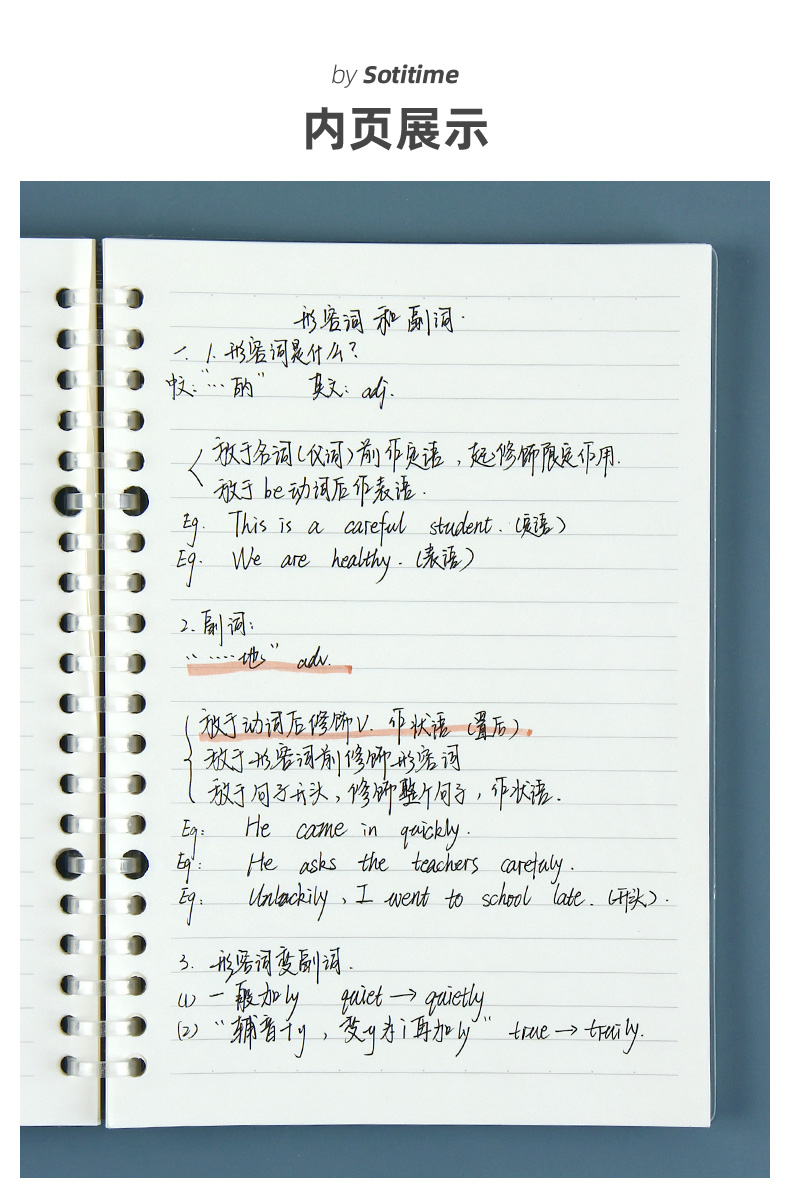 by Sotitime
内页展示
形容词 和 副词.
一. 1. 形容词是什么?
中文:"…的" 英文: adj.
放于名词(代词)前作定语,起修饰限定作用.
放于be动词后作表语.
Eg. This is a careful student. (定语)
Eg. We are healthy. (表语)
2. 副词:
"……地" adv.
放于动词后修饰V. 作状语 (置后)
放于形容词前修饰形容词
放于句子开头,修饰整个句子,作状语.
Eg: He came in quickly.
Eg: He asks the teachers carefuly.
Eg: Unluckily, I went to school late. (开头).
3. 形容词变副词.
(1) 一般加ly quiet → quietly
(2) "辅音+y,变y为i再加ly" true → truily.